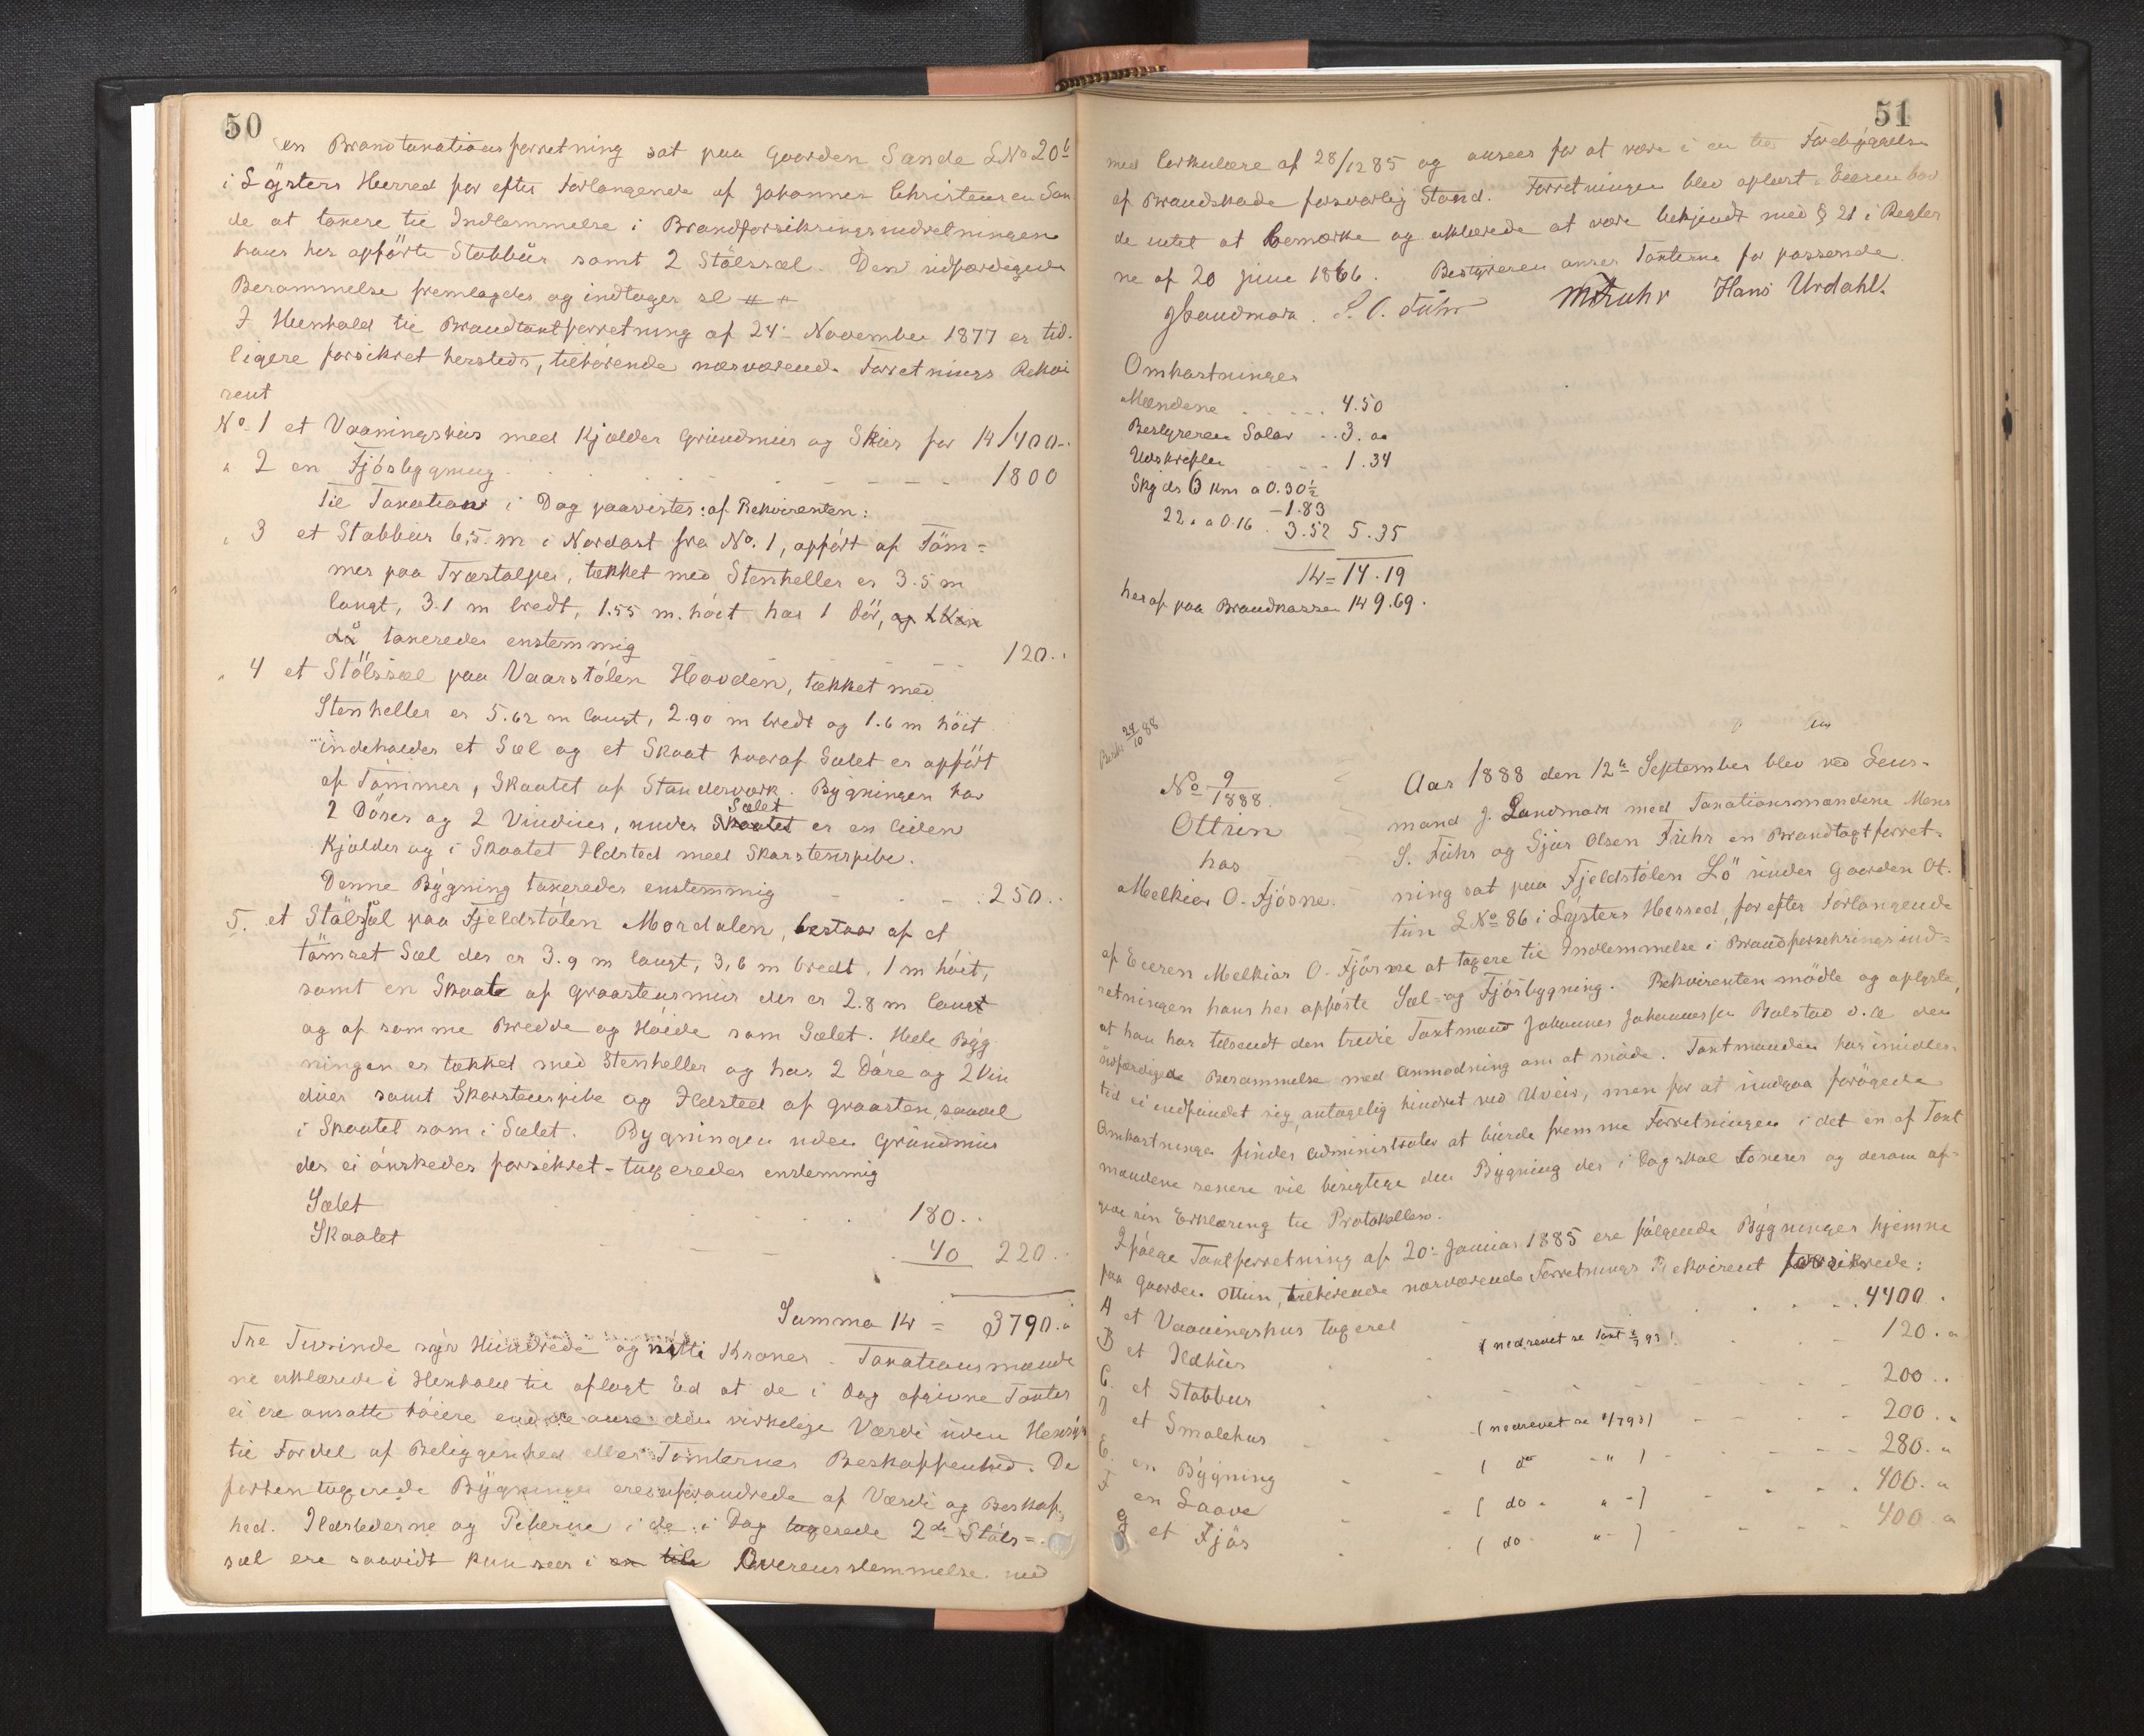 50
en Brandtaxationsforretning sat paa Gaarden Sande L No 20 b
i Lÿsters Herred for efter Forlangende af Johannes Christensen San
de at taxere til Indlemmelse i Brandforsikringsindretningen
hans her opförte Stabbur samt 2 Stölssæl. Den udfærdigede
Berammelse fremlagdes og indtages sl
I Henhold til Brandtaxtforretning af 24 November 1877 er tid-
ligere forsikret hersteds, tilhörende nærværende Forretnings Rekvi
rent
No 1 et Vaaningshus med Kjælder Grundmur og Skur for Kr 1400..
" 2 en Fjösbygning 1800
Til Taxation i Dag paavistes af Rekvirenten:
" 3 et Stabbur 6,5 m i Nordost fra No. 1, opfört af Töm-
mer paa Træstolper, tækket med Stenheller er 3.5 m
langt, 3.1 m bredt, 1.55 m. höit har 1 Dör, og
taxeredes enstemmig 120..
" 4 et Stölssæl paa Vaarstölen Hovden, tækket med
Stenheller er 5.62 m langt, 2.90 m bredt og 1.6 m höit
indeholder et Sæl og et Skaat hvoraf Sælet er opfört
af Tömmer, Skaatet af Standerværk. Bygningen har
2 Dörer og 2 Vinduer, under Skaatet Sælet er en liden
Kjælder og i Skaatet Ildsted med Skorstenspibe.
Denne Bygning taxeredes enstemmig 250..
5. et Stölssæl paa Fjeldstölen Mordalen, bestaar af et
tömret Sæl der er 3.9 m langt, 3,6 m bredt, 1 m höit,
samt en Skaate af Graastensmur der er 2.8 m langt
og af samme Bredde og Höide som Sælet. Hele Byg
ningen er tækket med Stenheller og har 2 Döre og 2 Vin
duer samt Skorstenspibe og Ildsted af Graasten, saavel
i Skaatet som i Sælet. Bygningen uden Grundmur
der ei önskedes forsikret - taxeredes enstemmig
Sælet 180..
Skaatet 40 220..
Summa Kr = 3790.
Tre Tusinde syv Hundrede og nitti Kroner. Taxationsmænde
ne erklærede i Henhold til aflagt Ed at de i Dag afgivne Taxter
ei ere ansatte höiere end de anse den virkelige Værdi uden Hensyn
til Fordel af Beliggenhed eller Tomternes Beskaffenhed. De
forhen taxerede Bygninger ere uforandrede af Værdi og Beskaf
hed. Ildstederne og Piberne i de i Dag taxerede 2de Stöls=
sæl ere saavidt kun sees i en Overensstemmelse med
51
med Cirkulære af 28/12 85 og ansees for at være i en til Forebyggelse
af Brandskade forsvarlig Stand. Forretningen blev oplæst. Eieren hav
de intet at bemærke og erklærede at være bekjendt med § 21 i Regler
ne af 20 juni 1866. Bestyreren anser Taxterne for passende.
J Landmark. S. O. Fuhr M Fuhr Hans Urdahl.
Omkostninger
Mændene 4.50
Bestyreren Salær 3. "
Udskriften 1.34
Skyds 6 Km a 0.30½
1.83
22 " a 0.16 3.52 5.35
Kr = 14.19
heraf paa Brandkassen Kr 9.69.
Besk. 24/10 88
No 9/1888.
Ottun
hos
Melkior O. Fjösne.
Aar 1888 den 12te September blev ved Lens-
mand J. Landmark med Taxationsmændene Mons
S. Fuhr og Sjur Olsen Fuhr en Brandtaxtforret-
ning sat paa Fjeldstölen Lö under Gaarden Ot-
tun L No 86 i Lysters Herred, for efter Forlangende
af Eieren Melkior O. Fjösne at taxere til Indlemmelse i Brandforsikringsind=
retningen hans her opförte Sæl- og Fjösbygning. Rekvirenten mödte og oplyste,
at han har tilsendt den tredie Taxtmand Johannes Johannessen Bolstad d. æ den
udfærdigede Berammelse med Anmodning om at möde. Taxtmanden har imidler
tid ei indfundet sig, antagelig hindret ved Uveir, men for at undgaa forögede
Omkostninger finder Administrator at burde fremme Forretningen i det en af Taxt
mændene senere vil besigtige den Bygning der i Dag skal taxeres og derom af=
give sin Erklæring til Protokollen.
Ifölge Taxtforretning af 20 Januar 1885 ere fölgende Bygninger hjemme
paa Gaarden Ottun, tilhörende nærværende Forretnings Rekvirent forsikrede:
A et Vaaningshus taxeret 4400.
B et Ildhus ( nedrevet se Taxt 93 ) 120. "
C. et Stabbur 200..
D et Smalehus ( nedrevet se 93 ) 200. "
E. en Bygning ( do " ) 280. "
F en Laave ( do " ) 400. "
G et Fjös ( do " ) 400 "